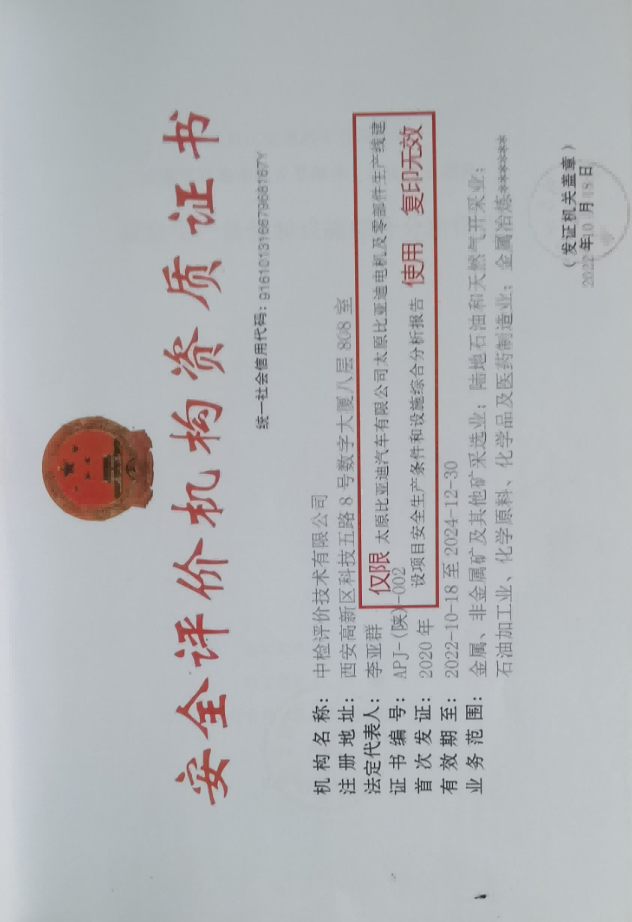 安全评价机构资质证书
统一社会信用代码：91610131667966167Y
机构名称：中检评价技术有限公司
注册地址：西安高新区科技五路8号数字大厦八层808室
法定代表人：李亚群
证书编号：APJ-(陕)-002
首次发证：2020年
有效期至：2022-10-18 至 2024-12-30
业务范围：金属、非金属矿及其他矿采选业；陆地石油和天然气开采业；
石油加工业、化学原料、化学品及医药制造业；金属冶炼******
仅限 太原比亚迪汽车有限公司太原比亚迪电机及零部件生产线建
设项目安全生产条件和设施综合分析报告 使用 复印无效
（发证机关盖章）
2022年10月18日